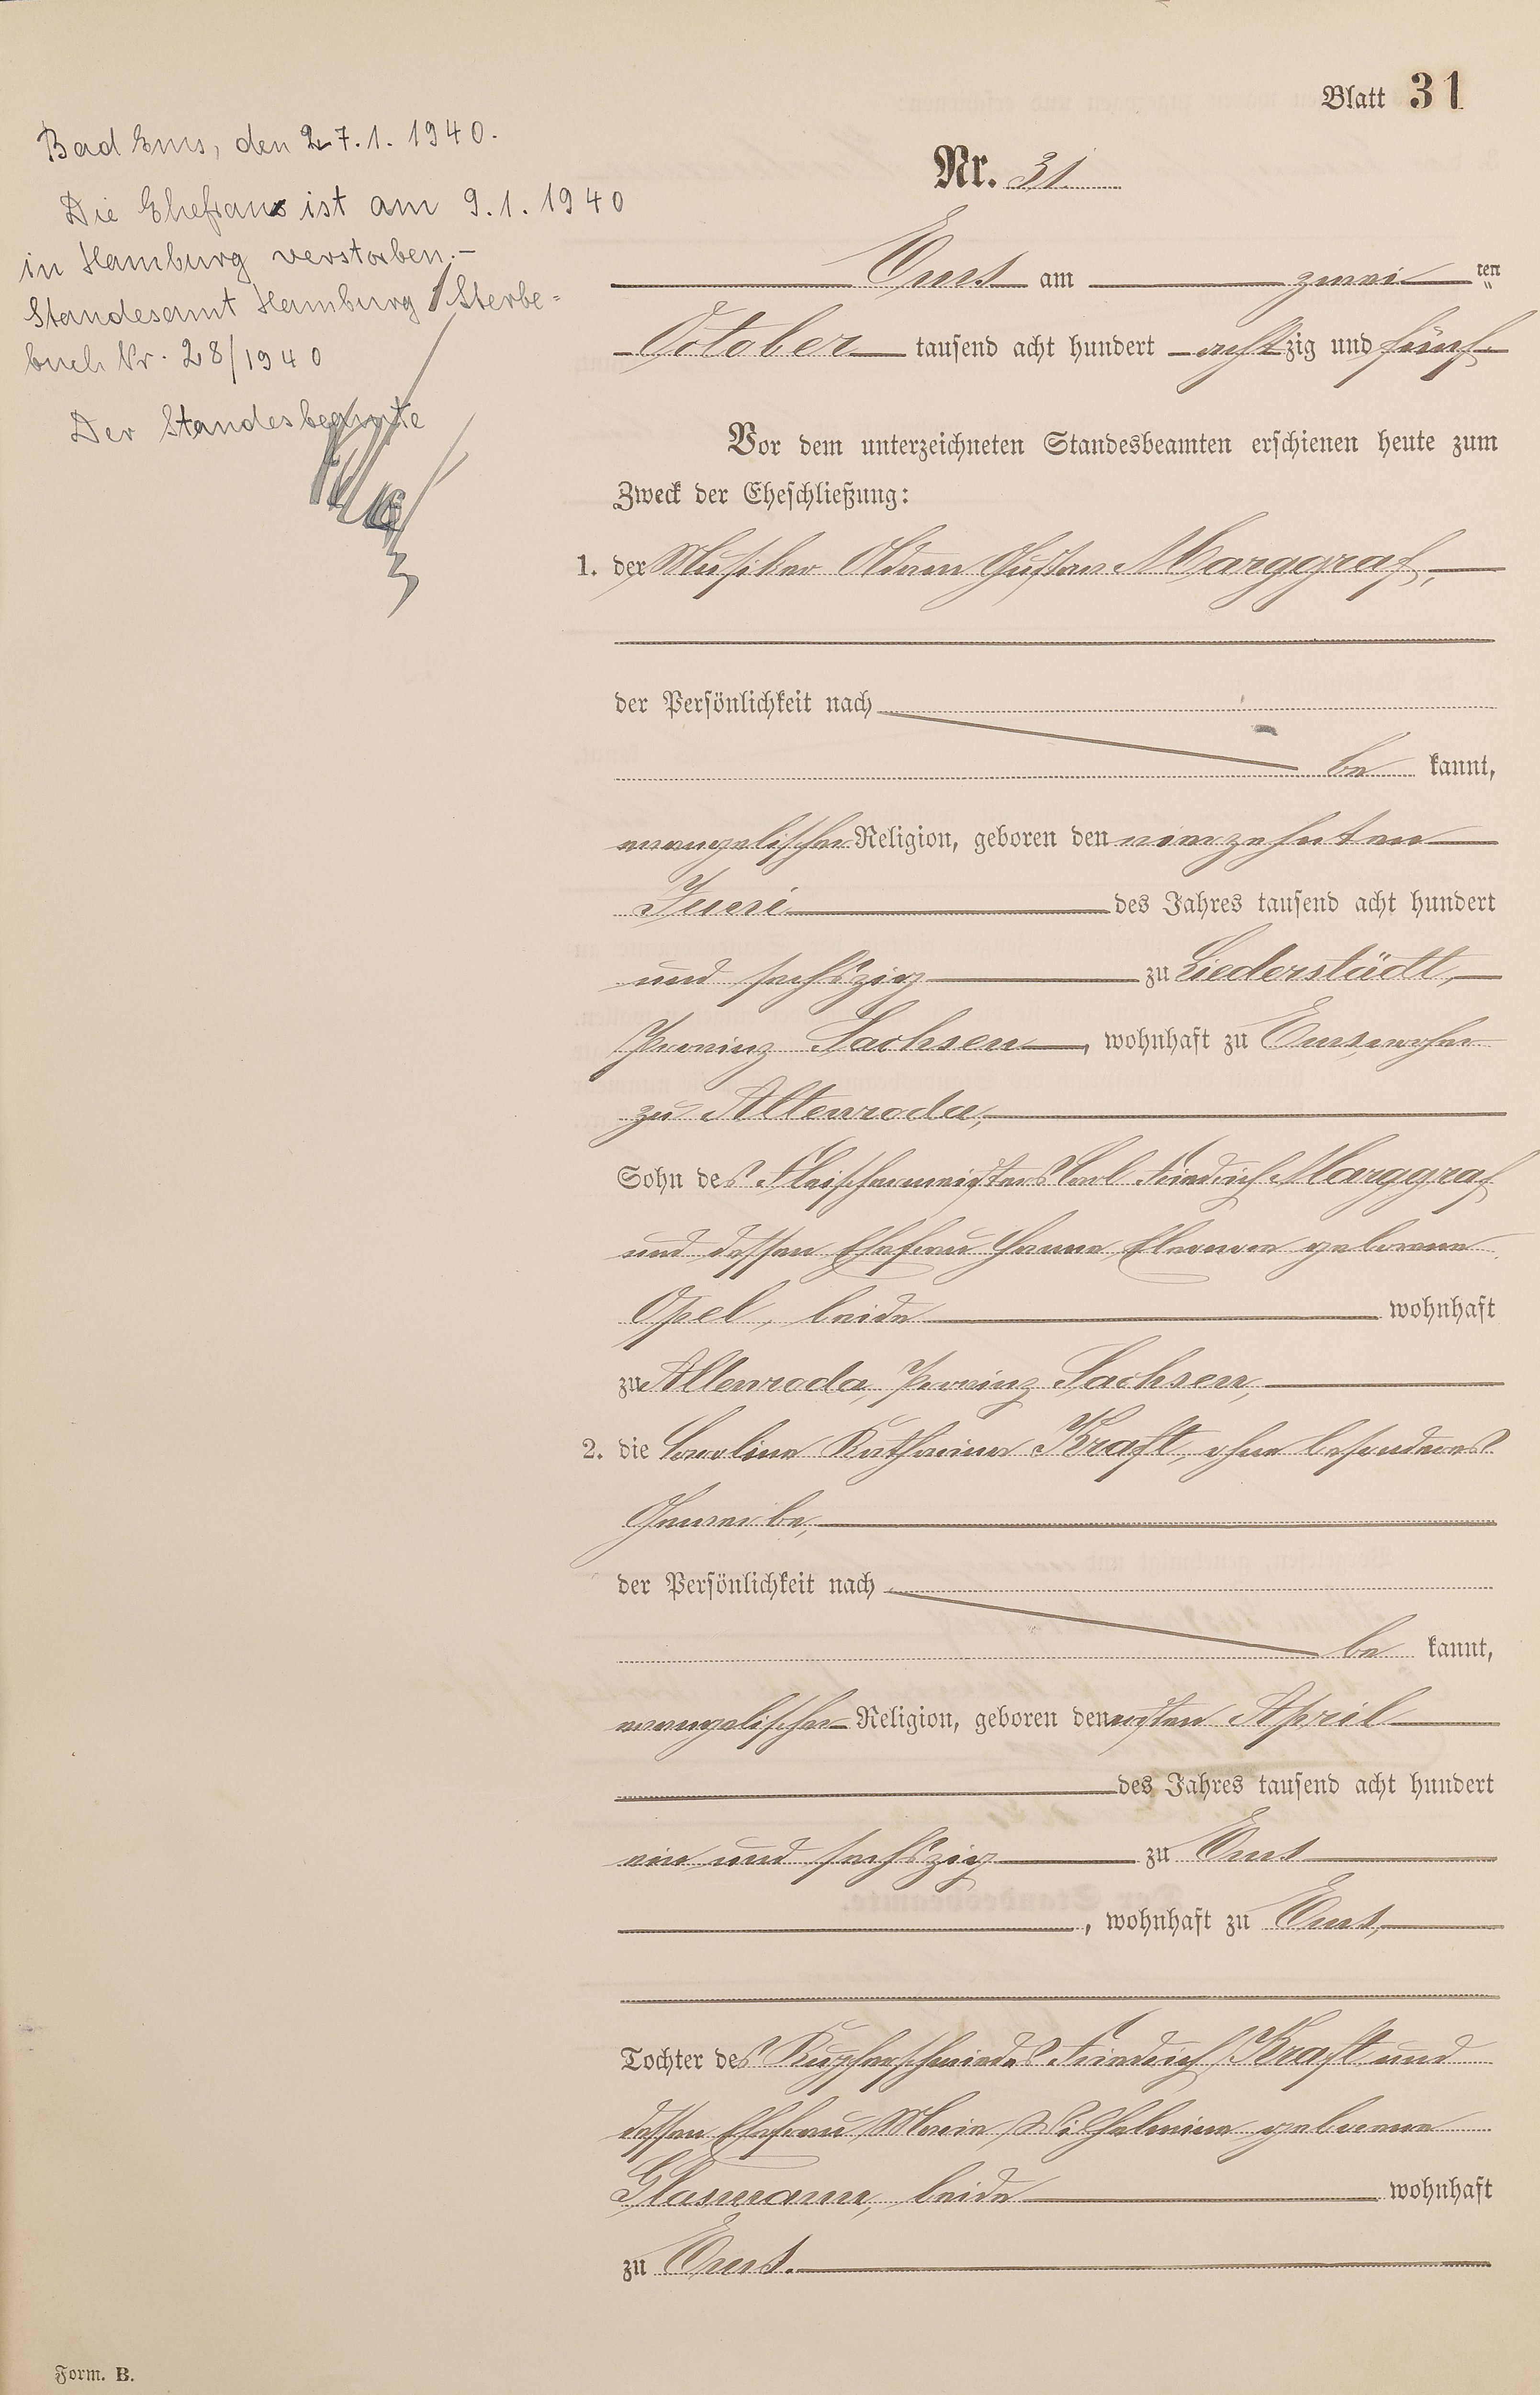 Blatt 31
Bad Ems, den 27. 1. 1940.
Die Ehefrau ist am 9. 1. 1940
in Hamburg verstorben. –
Standesamt Hamburg 1 Sterbe=
buch Nr. 28/1940
Der Standesbeamte
Nr. 31.
Ems am zwei ten
October tausend acht hundert achtzig und fünf.
Vor dem unterzeichneten Standesbeamten erschienen heute zum
Zweck der Eheschließung:
1. der Musiker Gustav Marggraf,
der Persönlichkeit nach
be kannt,
evangelischer Religion, geboren den vierzehnten
Juni des Jahres tausend acht hundert
und sechszig zu Liederstädt,
Provinz Sachsen, wohnhaft zu Ems, vorher
zu Altenroda,
Sohn des Fleischermeisters Carl Friedrich Marggraf
und dessen Ehefrau Hanne Eleonore geborene
Opel, beide wohnhaft
zu Altenroda, Provinz Sachsen,
2. die Caroline Katharina Kraft, ohne besonderes
Gewerbe,
der Persönlichkeit nach
be kannt,
evangelischer Religion, geboren den ersten April
des Jahres tausend acht hundert
ein und sechszig zu Ems
, wohnhaft zu Ems,
Tochter des Kupferschmiedes Friedrich Kraft und
dessen Ehefrau Marie Wilhelmine geborene
Glasmann, beide wohnhaft
zu Ems.
Form. B.